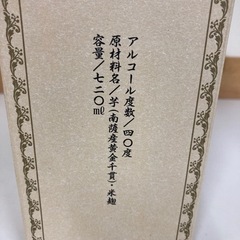 アルコール度数/四〇度
原材料名/芋(南薩産黄金千貫)・米麹
容量/七二〇㎖